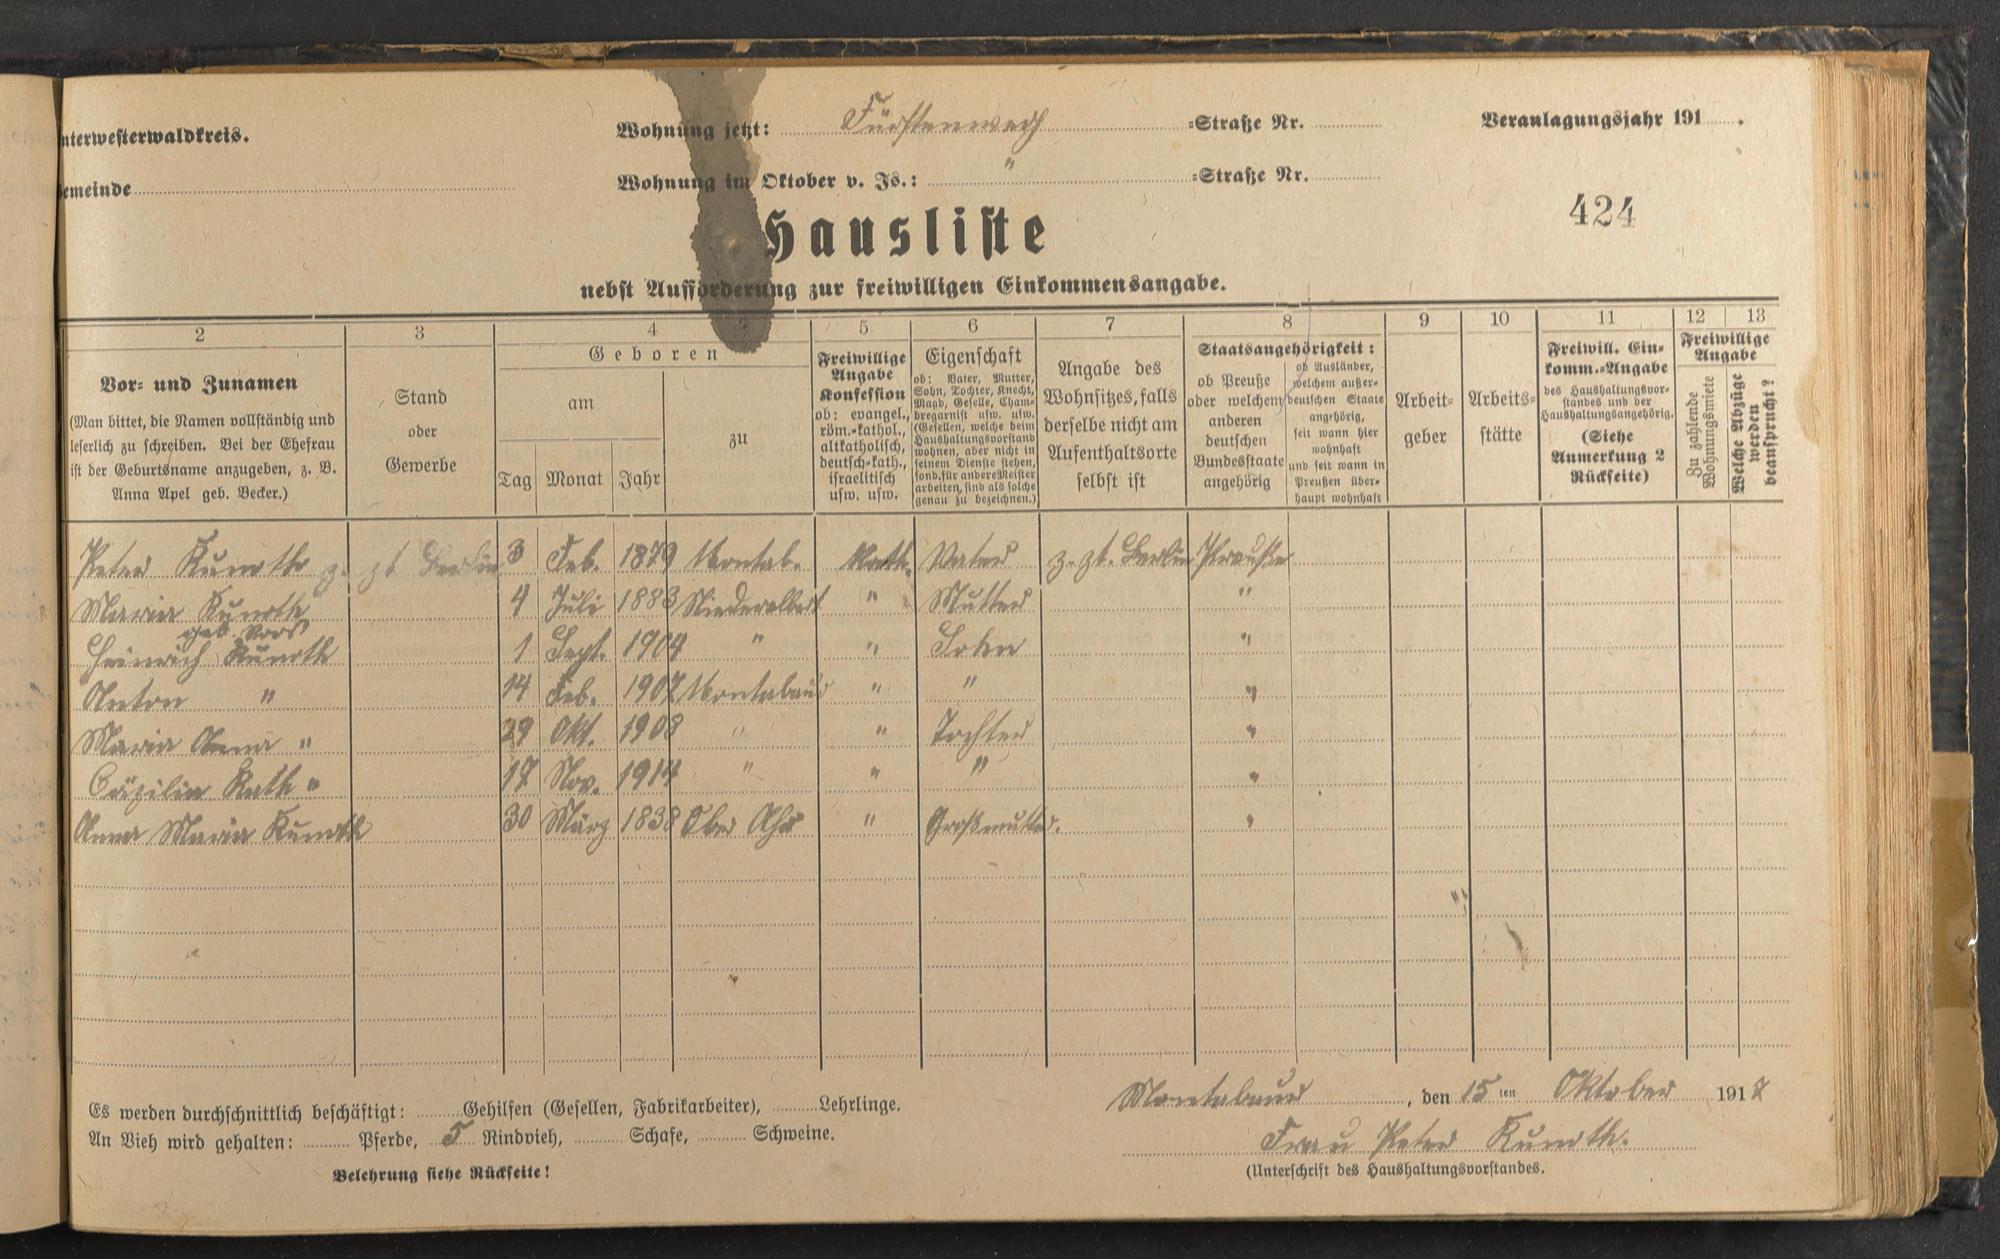 nterwesterwaldkreis.
Wohnung jetzt: Fürstenweg -Straße Nr.
Veranlagungsjahr 191 .
emeinde
Wohnung im Oktober v. Js.: " -Straße Nr.
424
Hausliste
nebst Aufforderung zur freiwilligen Einkommensangabe.
2 3 4 5 6 7 8 9 10 11 12 13
Vor- und Zunamen
(Man bittet, die Namen vollständig und
leserlich zu schreiben. Bei der Ehefrau
ist der Geburtsname anzugeben, z. B.
Anna Apel geb. Becker.)
Stand
oder
Gewerbe
Geboren
am
Tag Monat Jahr
zu
Freiwillige
Angabe
Konfession
ob: evangel.,
röm.-kathol.,
altkatholisch,
deutsch-kath.,
israelitisch
usw. usw.
Eigenschaft
ob: Vater, Mutter,
Sohn, Tochter, Knecht,
Magd, Geselle, Cham-
bregarnist usw. usw.
(Gesellen, welche beim
Haushaltungsvorstand
wohnen, aber nicht in
seinem Dienste stehen,
sond. für andere Meister
arbeiten, sind als solche
genau zu bezeichnen.)
Angabe des
Wohnsitzes, falls
derselbe nicht am
Aufenthaltsorte
selbst ist
Staatsangehörigkeit:
ob Preuße
oder welchem
anderen
deutschen
Bundesstaate
angehörig
ob Ausländer,
welchem außer-
deutschen Staate
angehörig,
seit wann hier
wohnhaft
und seit wann in
Preußen über-
haupt wohnhaft
Arbeit-
geber
Arbeits-
stätte
Freiwill. Ein-
komm.-Angabe
des Haushaltungsvor-
standes und der
Haushaltungsangehörig.
(Siehe
Anmerkung 2
Rückseite)
Freiwillige
Angabe
Zu zahlende
Wohnungsmiete
Welche Abzüge
werden
beansprucht?
Peter Kunoth z. zt Berlin 3 Feb. 1879 Montab. Kath. Vater z. zt. Berlin Preuße
Maria Kunoth 4 Juli 1883 Niederelbert " Mutter "
geb. Roos
Heinrich Kunoth 1 Sept. 1904 " " Sohn "
Anton " 14 Feb. 1907 Montabaur " " "
Maria Anna " 29 Okt. 1908 " " Tochter "
Cäzilia Kath " 17 Nov. 1914 " " " "
Anna Maria Kunoth 30 März 1838 Ober Ahr " Großmutter. "
Es werden durchschnittlich beschäftigt: Gehilfen (Gesellen, Fabrikarbeiter), Lehrlinge.
An Vieh wird gehalten: Pferde, 5 Rindvieh, Schafe, Schweine.
Belehrung siehe Rückseite!
Montabaur , den 15 ten Oktober 1917
Frau Peter Kunoth.
(Unterschrift des Haushaltungsvorstandes.